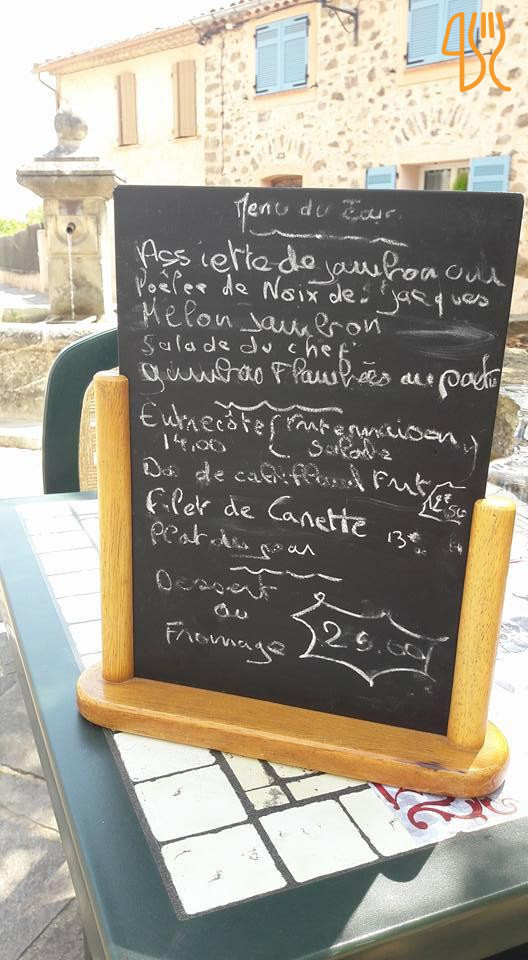 Menu du Jour
Assiette de jambon cru
Poêlée de Noix de St Jacques
Melon Jambon
Salade du chef
Gambas Flambées au pastis
Entrecôte ( Frite maison
14,00 Salade )
Dos de cabillaud Frit 12€50
Filet de Canette 13€
Plat du jour
Dessert
ou
Fromage 25.00